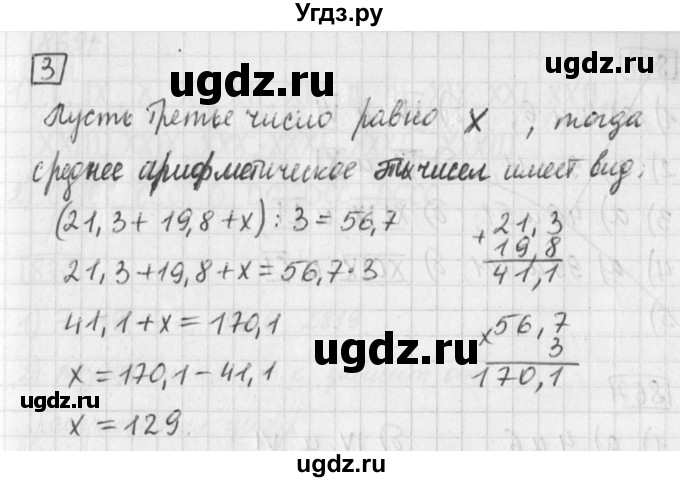 Угдз.ру
3
ugdz.ru
Пусть третье число равно x, тогда
среднее арифметическое этих чисел имеет вид:
(21,3 + 19,8 + x) : 3 = 56,7
21,3 + 19,8 + x = 56,7 · 3
41,1 + x = 170,1
x = 170,1 − 41,1
x = 129
+ 21,3
19,8
41,1
× 56,7
3
170,1
ugdz.ru
ugdz.ru
ugdz.ru
ugdz.ru
ugdz.ru
ugdz.ru